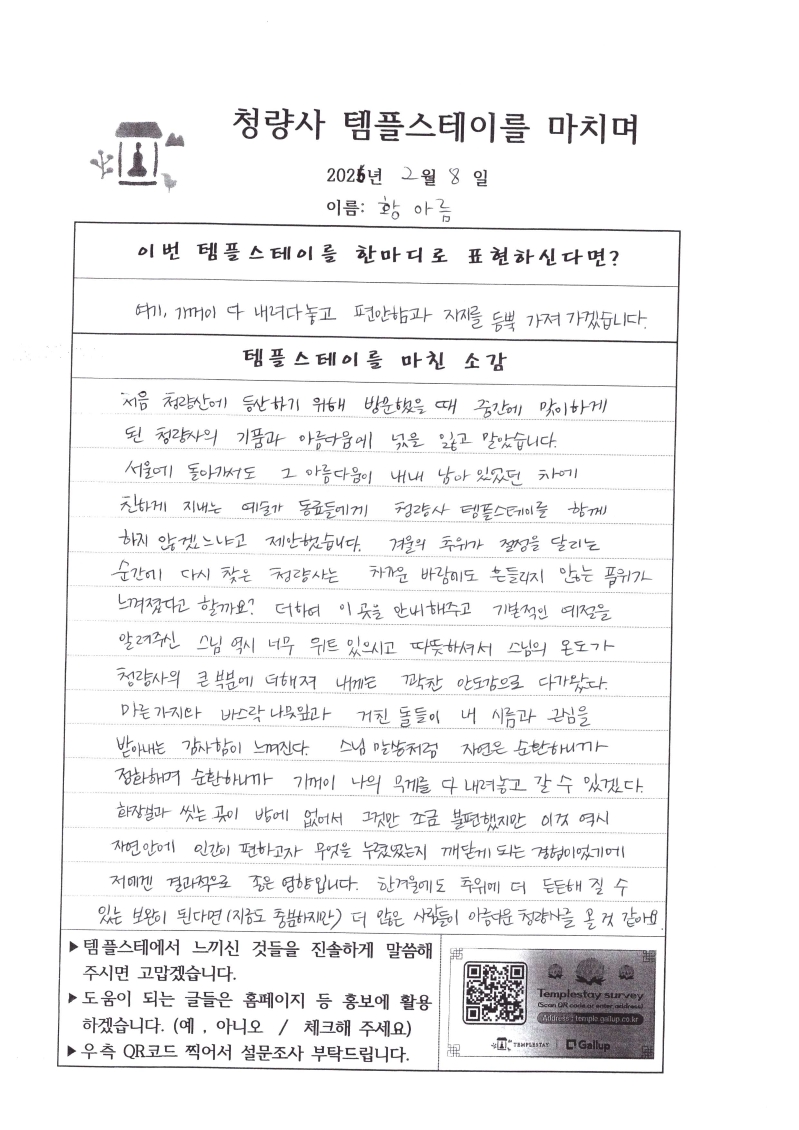 청량사 템플스테이를 마치며
2025년 2월 8일
이름: 황아름
이번 템플스테이를 한마디로 표현하신다면?
여기, 기꺼이 다 내려다놓고 편안함과 자지를 듬뿍 가져가겠습니다.
템플스테이를 마친 소감
처음 청량산에 등산하기 위해 방문했을 때 중간에 맞이하게
된 청량사의 기품과 아름다움에 넋을 잃고 말았습니다.
서울에 돌아가서도 그 아름다움이 내내 남아 있었던 차에
친하게 지내는 예술가 동료들에게 청량사 템플스테이를 함께
하지 않겠느냐고 제안했습니다. 겨울의 추위가 절정을 달리는
순간에 다시 찾은 청량사는 차가운 바람에도 흔들리지 않는 품위가
느껴졌다고 할까요? 더하여 이 곳을 안내해주고 기본적인 예절을
알려주신 스님 역시 너무 위트 있으시고 따뜻하셔서 스님의 온도가
청량사의 큰 부분에 더해져 내게는 꽉찬 안도감으로 다가왔다.
마른 가지와 바스락 나뭇잎과 거친 돌들이 내 시름과 관심을
받아내는 감사함이 느껴진다. 스님 말씀처럼 자연은 순환하니까
정화해며 순환하니까 기꺼이 나의 무게를 다 내려놓고 갈 수 있겠다.
화장실과 씻는 곳이 방에 없어서 그것만 조금 불편했지만 이것 역시
자연안에 인간이 편하고자 무엇을 누렸었는지 깨닫게 되는 경험이었기에
저에겐 결과적으로 좋은 영향입니다. 한겨울에도 추위에 더 든든해 질 수
있는 보완이 된다면 (지금도 충분하지만) 더 많은 사람들이 아름다운 청량사를 올 것 같아요.
▶템플스테에서 느끼신 것들을 진솔하게 말씀해
주시면 고맙겠습니다.
▶도움이 되는 글들은 홈페이지 등 홍보에 활용
하겠습니다. (예 , 아니오 / 체크해 주세요)
▶우측 QR코드 찍어서 설문조사 부탁드립니다.
Templestay survey
(Scan QR code or enter address)
Address : temple.gallup.co.kr
TEMPLESTAY
Gallup